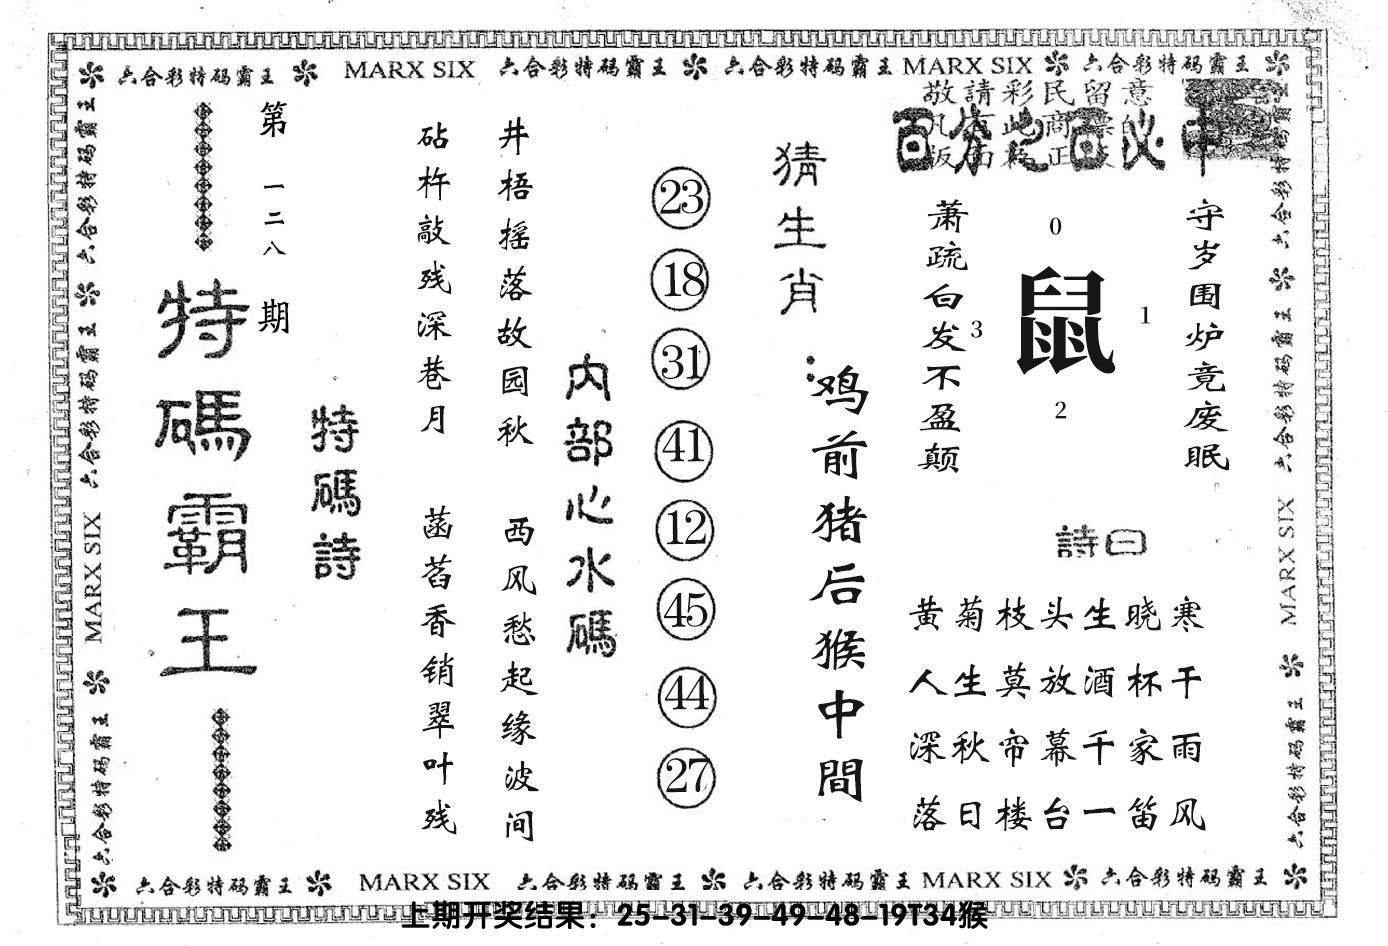 六合彩特码霸王 MARX SIX 六合彩特码霸王 六合彩特码霸王 MARX SIX 六合彩特码霸王
敬請彩民留意
守岁围炉竟废眠
0
鼠
1
3
2
萧疏白发不盈颠
詩曰
黄菊枝头生晓寒
人生莫放酒杯干
深秋帘幕千家雨
落日楼台一笛风
猜生肖：
鸡前猪后猴中間
23
18
31
41
12
45
44
27
内部心水碼
井梧摇落故园秋 西风愁起缘波间
砧杵敲残深巷月 菡萏香销翠叶残
特碼詩
第一二八期
特碼霸王
六合彩特码霸王 六合彩特码霸王 MARX SIX 六合彩特码霸王
六合彩特码霸王 六合彩特码霸王 MARX SIX 六合彩特码霸王
六合彩特码霸王 MARX SIX 六合彩特码霸王 六合彩特码霸王 MARX SIX 六合彩特码霸王
上期开奖结果：25-31-39-49-48-19T34猴